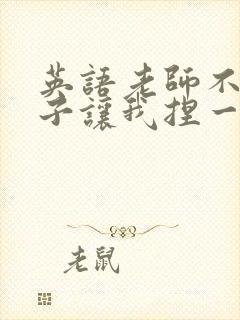 英語老師不
子讓我捏一
老鼠